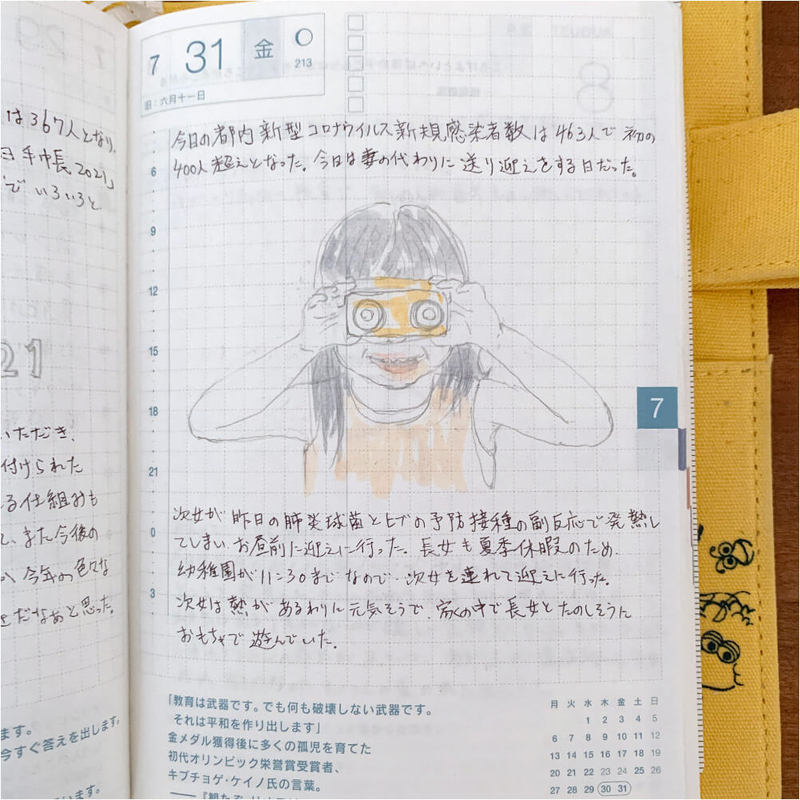 は367人となり、
手帳2021」
でいろいろと
21
いただき、
付けられた
る仕組みも
、また今後の
今年の色々な
だなぁと思った。
ます。
今すぐ答えを出します。
います。
7 31 金
213
旧:六月十一日
今日の都内新型コロナウイルス新規感染者数は463人で初の
400人超えとなった。今日は妻の代わりに送り迎えをする日だった。
6
9
12
15
18
21
0
3
7
次女が昨日の肺炎球菌とヒブの予防接種の副反応で発熱し
てしまい、お昼前に迎えに行った。長女も夏季休暇のため、
幼稚園が11:30までなので、次女を連れて迎えに行った。
次女は熱があるわりに元気そうで、家の中で長女とたのしそうに
おもちゃで遊んでいた。
「教育は武器です。でも何も破壊しない武器です。
それは平和を作り出します」
金メダル獲得後に多くの孤児を育てた
初代オリンピック栄誉賞受賞者、
キプチョゲ・ケイノ氏の言葉。
月 火 水 木 金 土 日
1 2 3 4 5
6 7 8 9 10 11 12
13 14 15 16 17 18 19
20 21 22 23 24 25 26
27 28 29 30 31